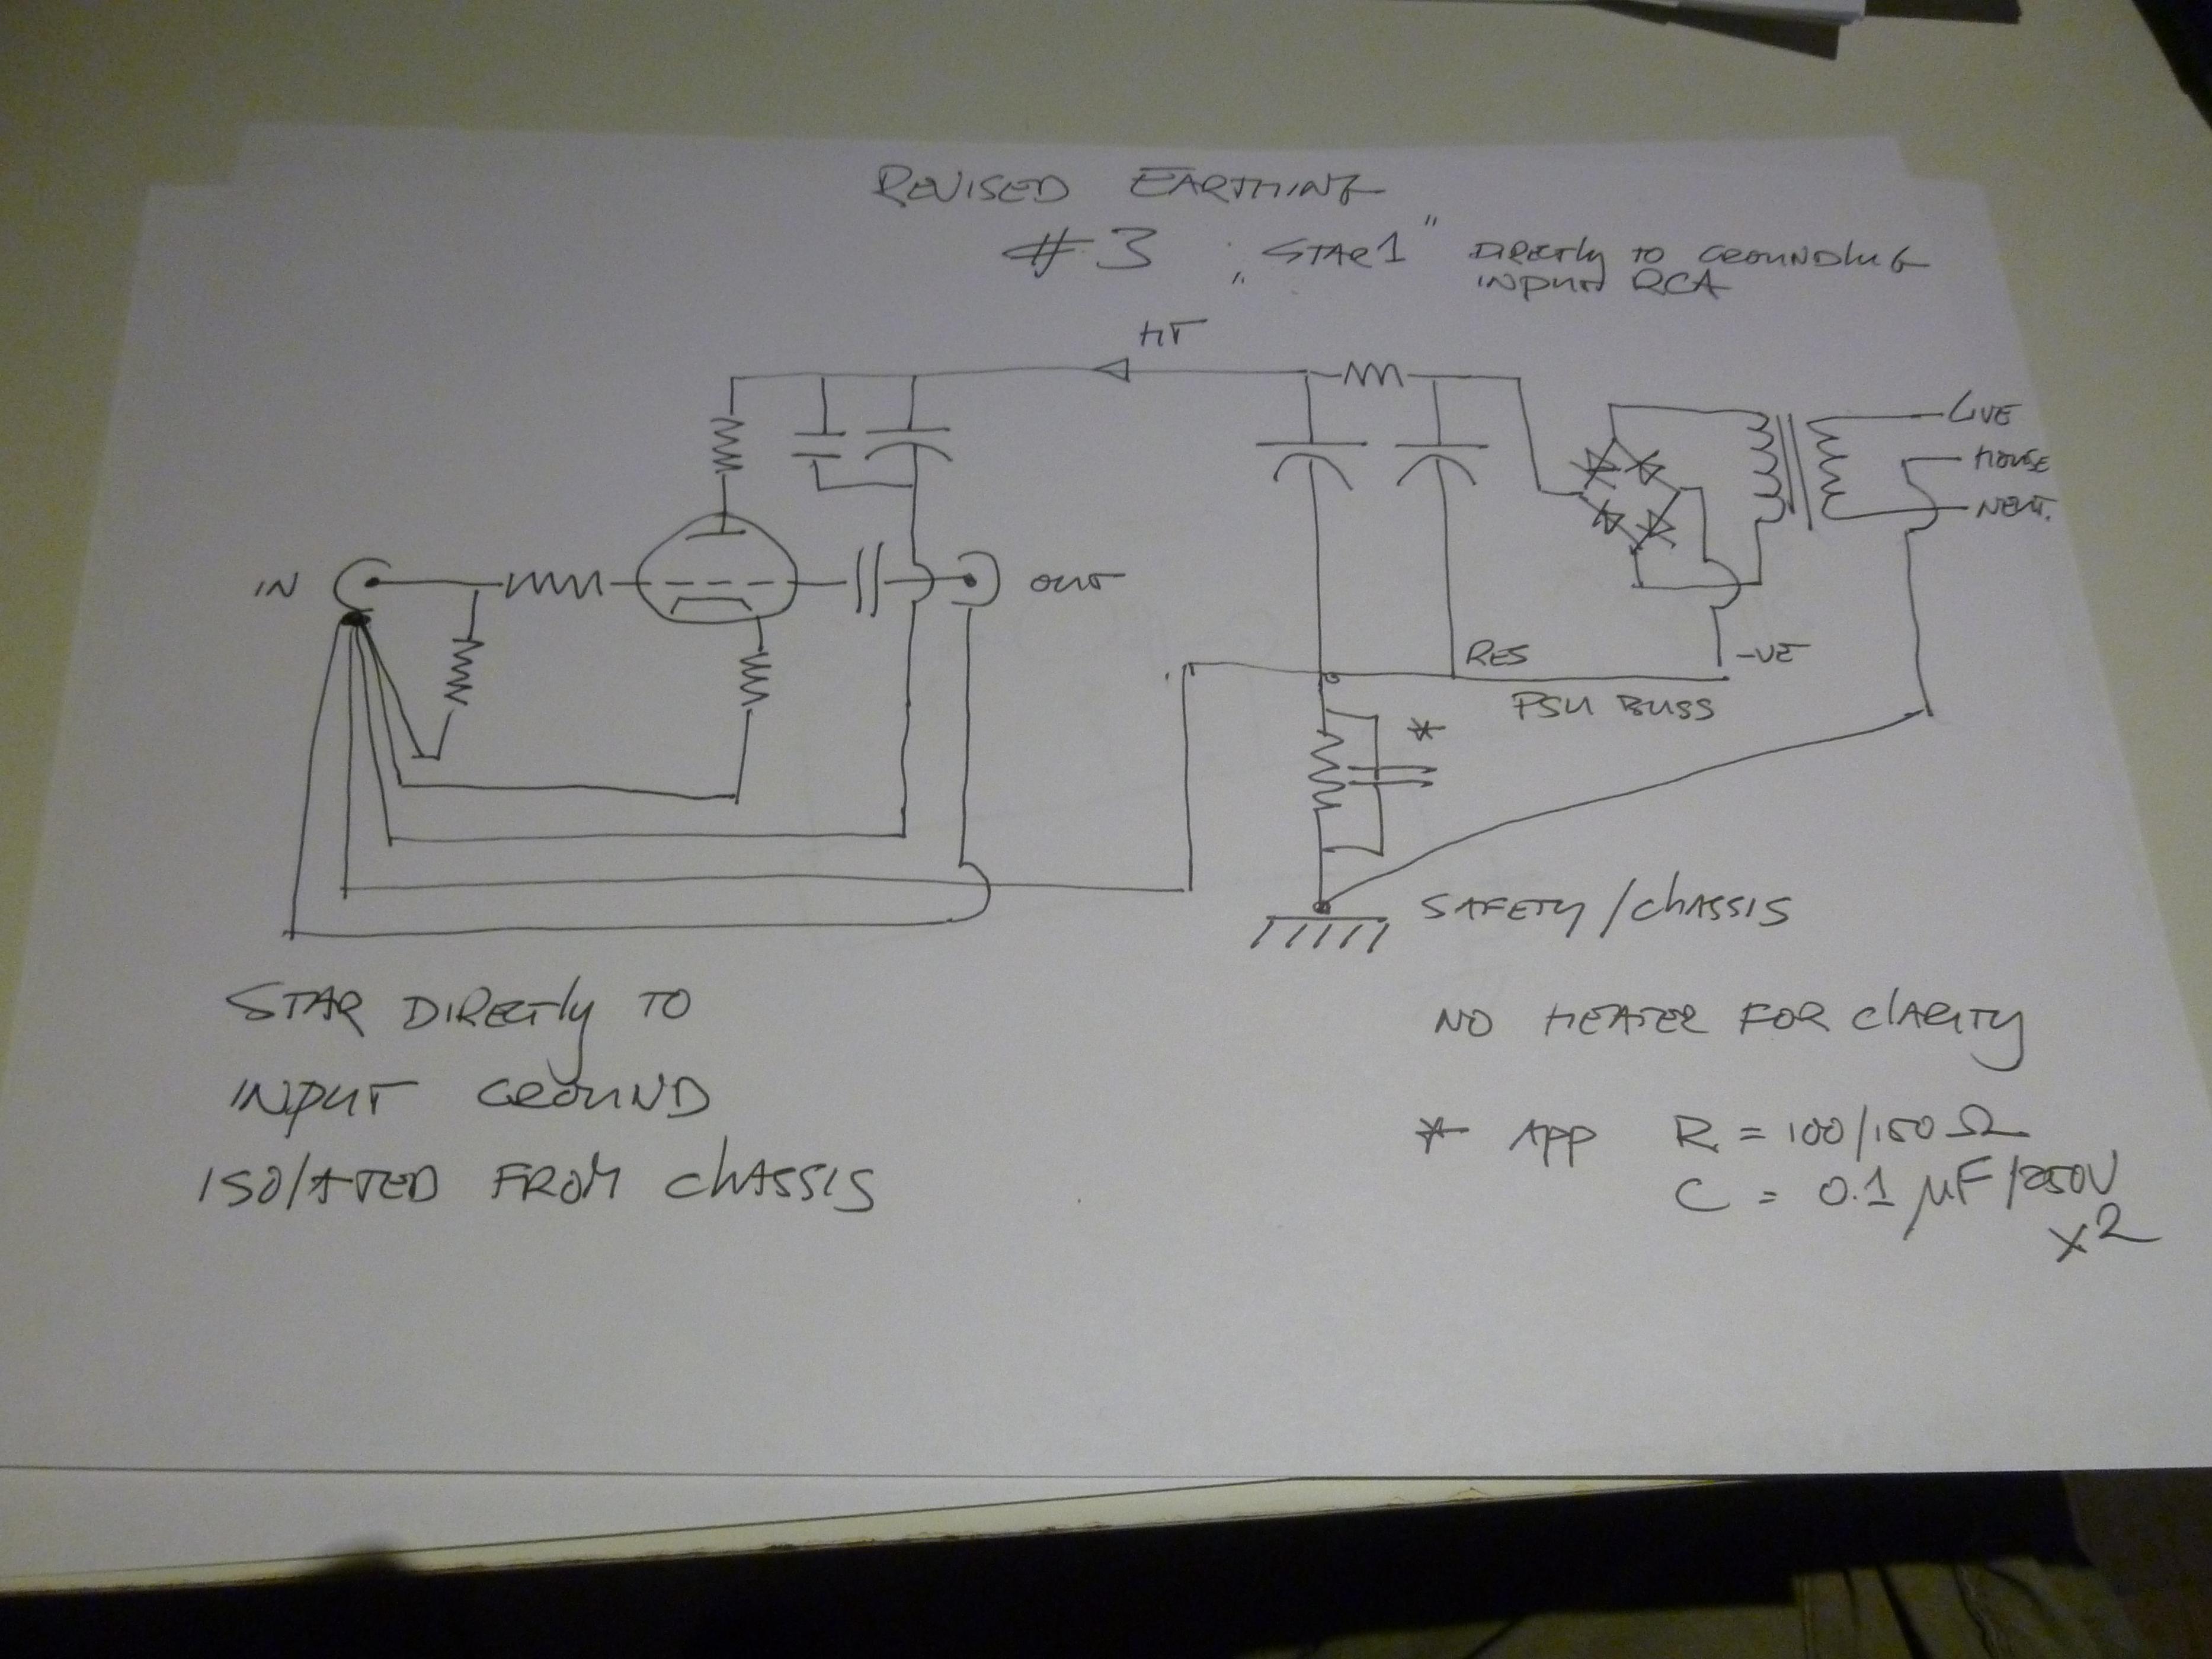 REVISED EARTHING
#3 „STAR1" DIRECTLY TO GROUNDLUG
INPUT RCA
HT
LIVE
HOUSE
NEUT.
IN
OUT
RES
-VE
PSU BUSS
*
SAFETY/CHASSIS
STAR DIRECTLY TO
INPUT GROUND
ISOLATED FROM CHASSIS
NO HEATER FOR CLARITY
* APP R = 100/150 Ω
C = 0.1 µF/250V
X2